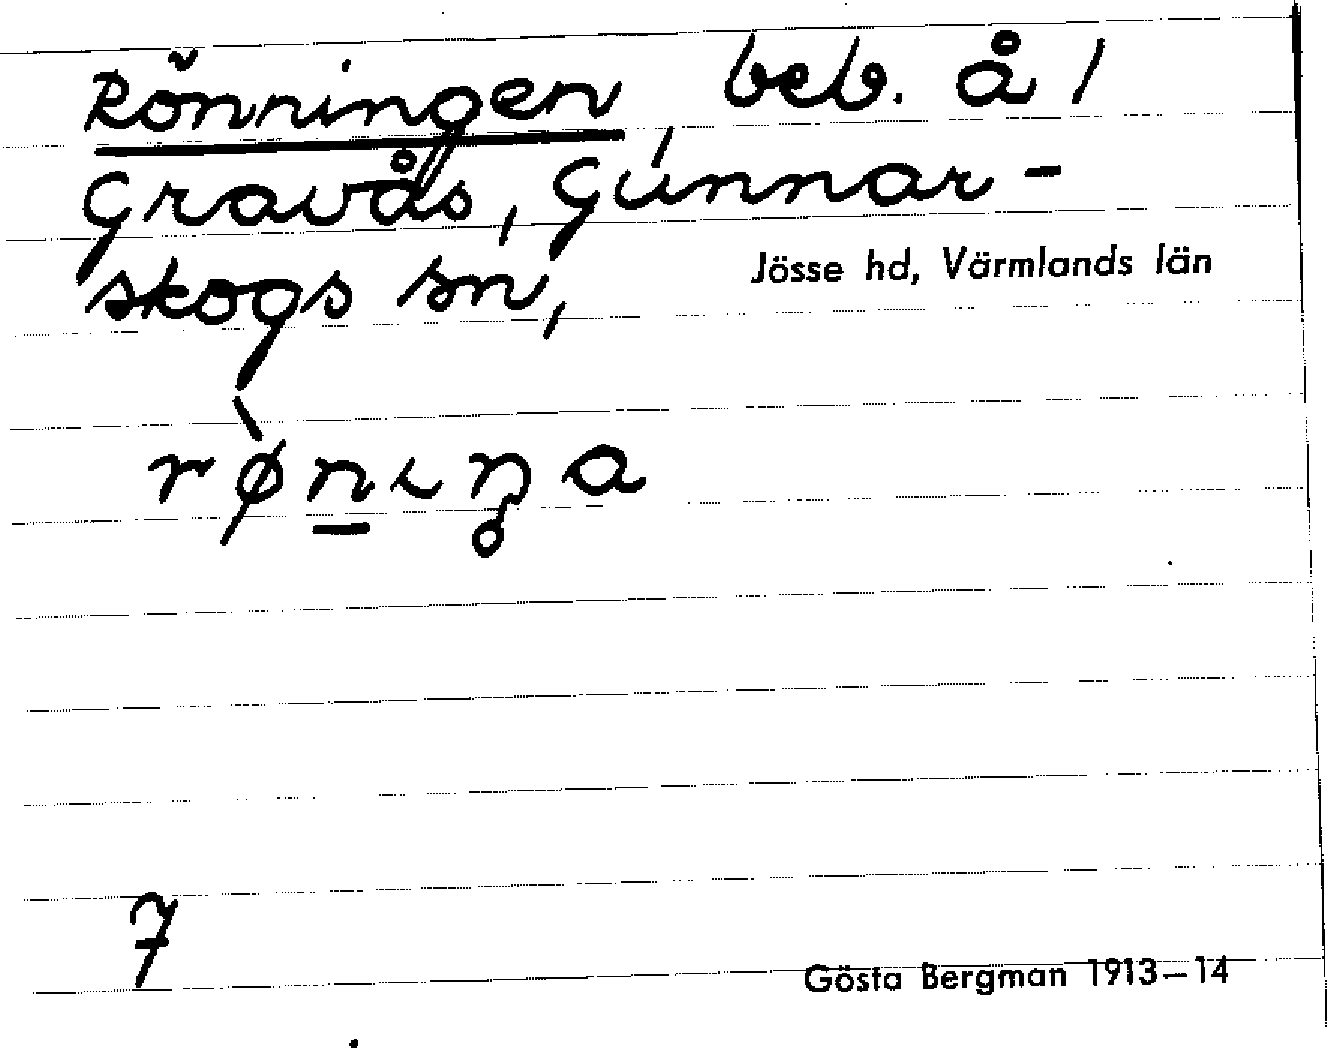 Rönningen, beb. å 1
Gravås, Gunnar-
skogs sn, Jösse hd, Värmlands län
7
Gösta Bergman 1913–14